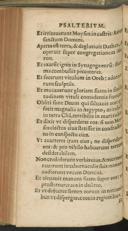 PSALTERIVM.
Et irritauerunt Moysen in castris: Aaron
sanctum Domini.
Aperta est terra, & deglutiuit Dathan: &
operuit super congregationem Abi-
ron.
Et exarsit ignis in Synagoga eorum: flam-
ma combussit peccatores.
Et fecerunt vitulum in Oreb: & adora-
uerunt sculptile.
Et mutauerunt gloriam suam in simili-
tudinem vituli comedentis foenum.
Obliti sunt Deum qui saluauit eos, qui
fecit magnalia in Aegypto, mirabilia
in terra Cham, terribilia in mari rubro.
Et dixit vt disperderet eos: si non Moyses
electus eius stetisset in confractione
in conspectu eius.
Vt auerteret iram eius, ne disperderet
eos: & pro nihilo habuerunt terram
desiderabilem.
Non crediderunt verbo eius, & murmu-
rauerunt in tabernaculis suis: non ex-
audierunt vocem Domini.
Et eleuauit manum suam super eos: vt
prosterneret eos in deserto.
Et vt deiiceret semen eorum in nationi-
bus: & dispergeret eos in regionibus.